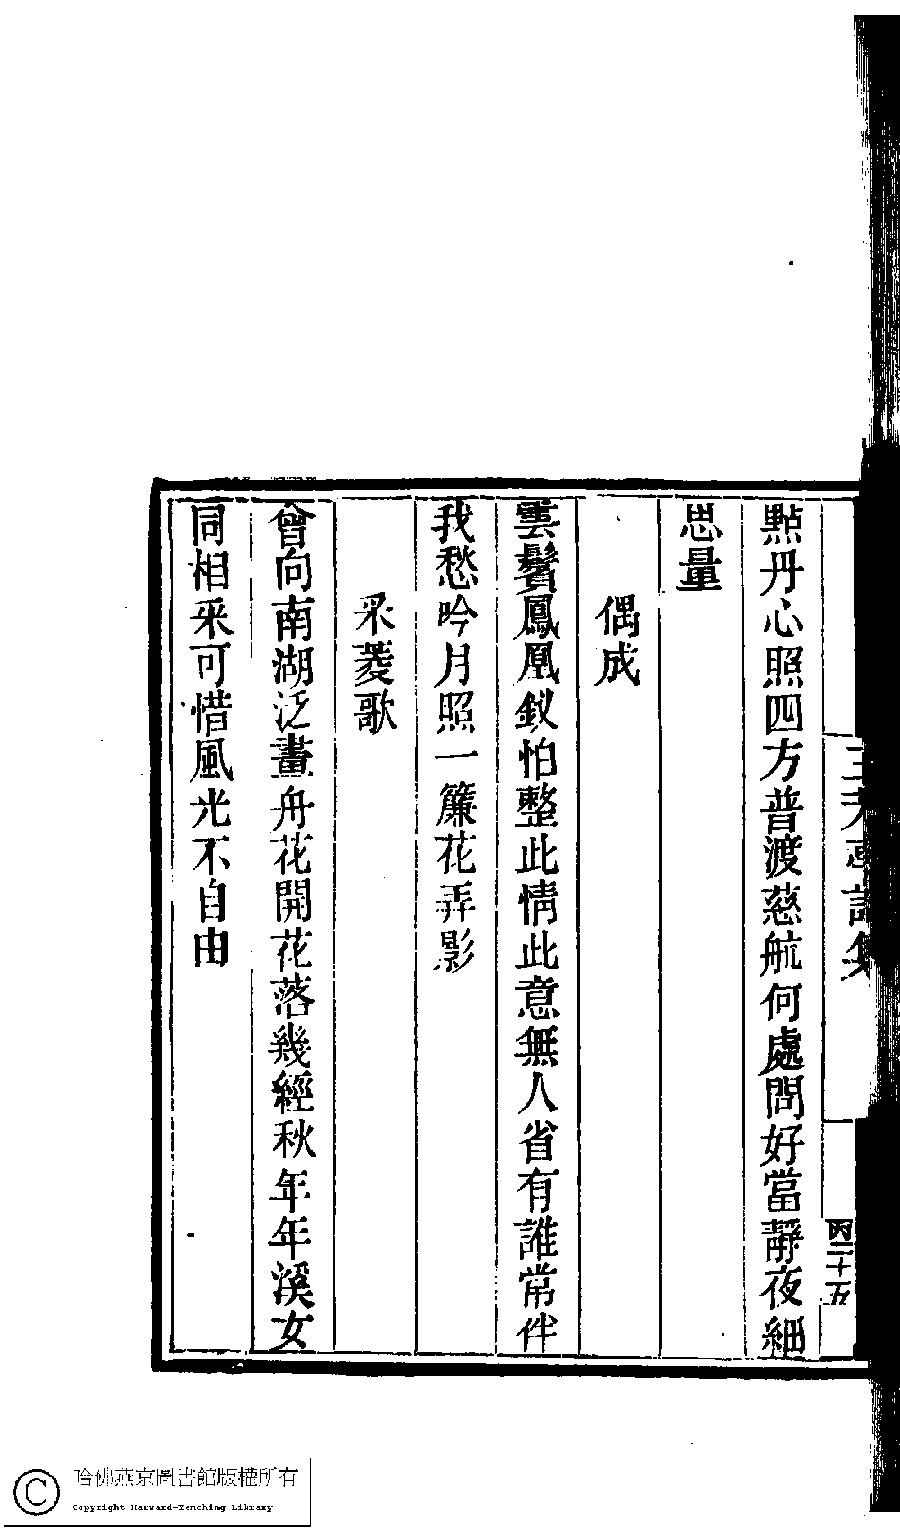 點丹心照四方普渡慈航何處問好當靜夜細
思量
偶成
雲鬢鳳凰釵怕整此情此意無人省有誰常伴
我愁吟月照一簾花弄影
采菱歌
曾向南湖泛畫舟花開花落幾經秋年年溪女
同相采可惜風光不自由
哈佛燕京圖書館版權所有
Copyright Harvard-Yenching Library